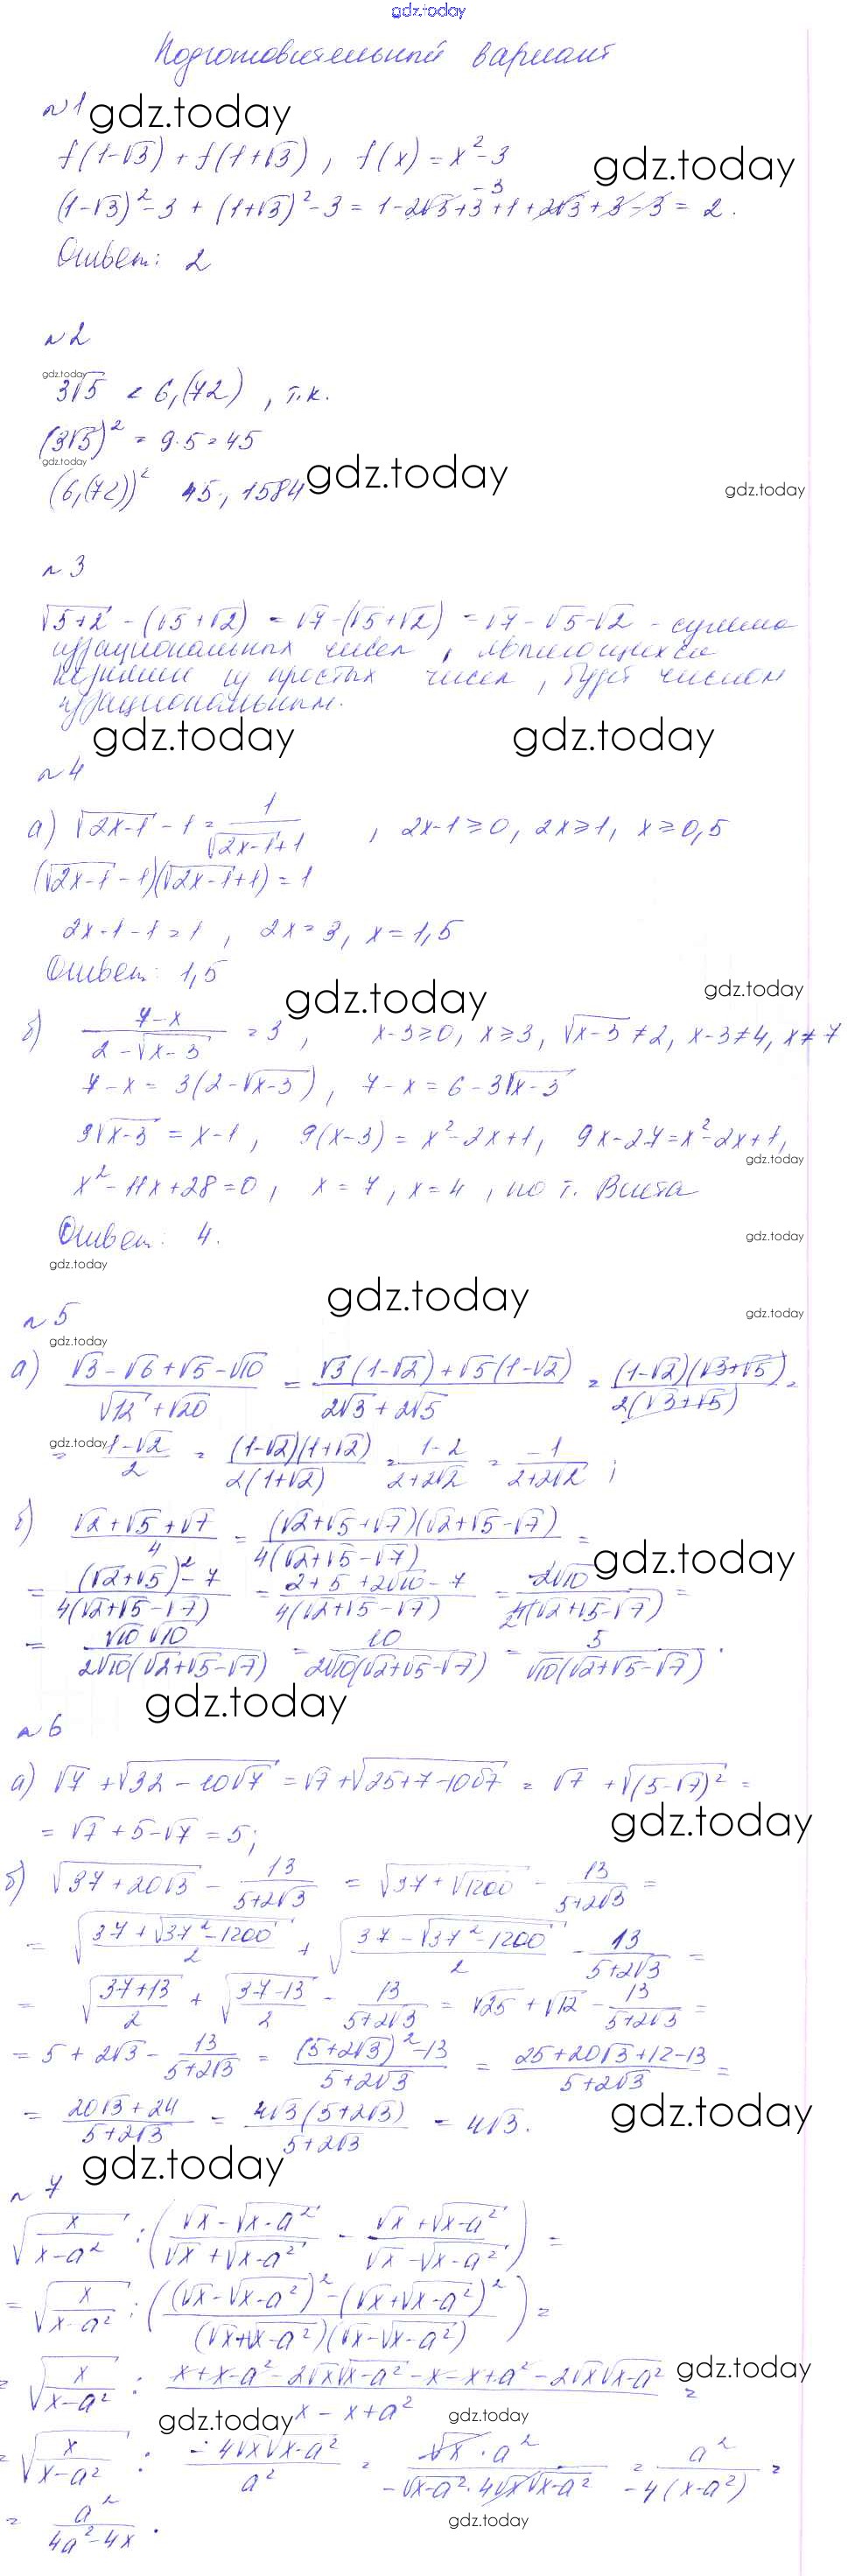 gdz.today
Подготовительный вариант
№1 gdz.today
f(1-√3) + f(1+√3), f(x) = x²-3
gdz.today
(1-√3)²-3 + (1+√3)²-3 = 1-2√3+3-3+1+2√3+3-3 = 2.
Ответ: 2
№2
gdz.today
3√5 < 6,(72), т.к.
(3√5)² = 9·5 = 45
gdz.today
(6,(72))² 45,1584 gdz.today
gdz.today
№3
√5+2 - (√5+√2) = √7-(√5+√2) = √7-√5-√2 - сумма
иррациональных чисел, являющихся
корнями из простых чисел, будет числом
иррациональным.
gdz.today gdz.today
№4
а) √(2x-1) - 1 = 1/(√(2x-1)+1), 2x-1≥0, 2x≥1, x≥0,5
(√(2x-1)-1)(√(2x-1)+1) = 1
2x-1-1=1, 2x=3, x=1,5
Ответ: 1,5
gdz.today gdz.today
б) (7-x)/(2-√(x-3)) = 3, x-3≥0, x≥3, √(x-3)≠2, x-3≠4, x≠7
7-x = 3(2-√(x-3)), 7-x = 6-3√(x-3)
3√(x-3) = x-1, 9(x-3) = x²-2x+1, 9x-27=x²-2x+1,
gdz.today
x²-11x+28=0, x=7, x=4, по т. Виета
Ответ: 4.
gdz.today
gdz.today
gdz.today
№5
gdz.today
gdz.today
а) (√3-√6+√5-√10)/(√12+√20) = (√3(1-√2)+√5(1-√2))/(2√3+2√5) = ((1-√2)(√3+√5))/(2(√3+√5)) =
gdz.today
= (1-√2)/2 = ((1-√2)(1+√2))/(2(1+√2)) = (1-2)/(2+2√2) = -1/(2+2√2);
б) (√2+√5+√7)/4 = ((√2+√5+√7)(√2+√5-√7))/(4(√2+√5-√7)) =
gdz.today
= ((√2+√5)²-7)/(4(√2+√5-√7)) = (2+5+2√10-7)/(4(√2+√5-√7)) = 2√10/(4(√2+√5-√7)) =
= (√10√10)/(2√10(√2+√5-√7)) = 10/(2√10(√2+√5-√7)) = 5/(√10(√2+√5-√7)).
gdz.today
№6
а) √7 + √(32-10√7) = √7+√(25+7-10√7) = √7 + √((5-√7)²) =
gdz.today
= √7+5-√7 = 5;
б) √(37+20√3) - 13/(5+2√3) = √(37+√1200) - 13/(5+2√3) =
= √((37+√(37²-1200))/2) + √((37-√(37²-1200))/2) - 13/(5+2√3) =
= √((37+13)/2) + √((37-13)/2) - 13/(5+2√3) = √25+√12 - 13/(5+2√3) =
= 5+2√3 - 13/(5+2√3) = ((5+2√3)²-13)/(5+2√3) = (25+20√3+12-13)/(5+2√3) =
= (20√3+24)/(5+2√3) = (4√3(5+2√3))/(5+2√3) = 4√3.
gdz.today
gdz.today
№7
√(x/(x-a²)) : ((√x-√(x-a²))/(√x+√(x-a²)) - (√x+√(x-a²))/(√x-√(x-a²))) =
= √(x/(x-a²)) : (((√x-√(x-a²))²-(√x+√(x-a²))²)/((√x+√(x-a²))(√x-√(x-a²)))) =
= √(x/(x-a²)) : (x+x-a²-2√x√(x-a²)-x-x+a²-2√x√(x-a²))/(x-x+a²) =
gdz.today
gdz.today gdz.today
= √(x/(x-a²)) : (-4√x√(x-a²))/a² = (√x·a²)/(-√(x-a²)·4√x√(x-a²)) = a²/(-4(x-a²)) =
= a²/(4a²-4x).
gdz.today